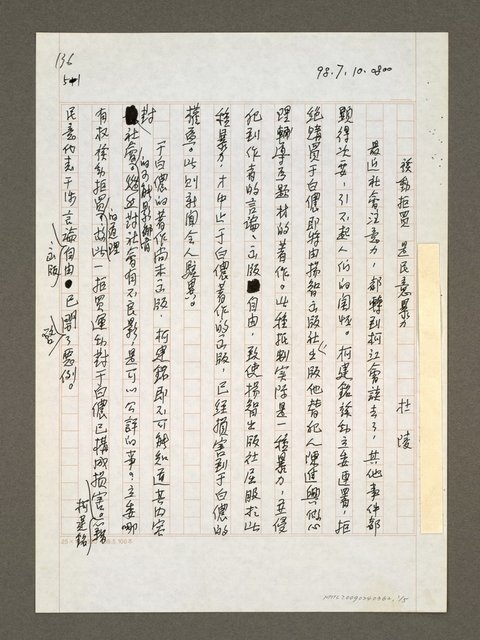 136
5-1
98.7.10.0800
發動拒買 是民意暴力
杜陵
最近社會注意力，都轉到柯江會談去了，其他事件都
顯得次要，引不起人們的關懷。柯建銘發動立委連署，拒
絕購買于白儂即將由揚智出版社出版他替犯人陳進興做心
理輔導為題材的著作。此種抵制實際是一種暴力，並侵
犯到作者的言論、出版自由，致使揚智出版社屈服於此
種暴力，才中止于白儂著作的出版，已經損害到于白儂的
權益。此則新聞令人駭異。
于白儂的著作尚未出版，柯建銘即不可能知道其內容
對社會
對社會有不良影響，是可以公評的事？立委哪
有權發動拒買
的道理
此一拒買運動對于白儂已構成損害
柯建銘
民意代表干涉言論自由
出版
已開了惡例。